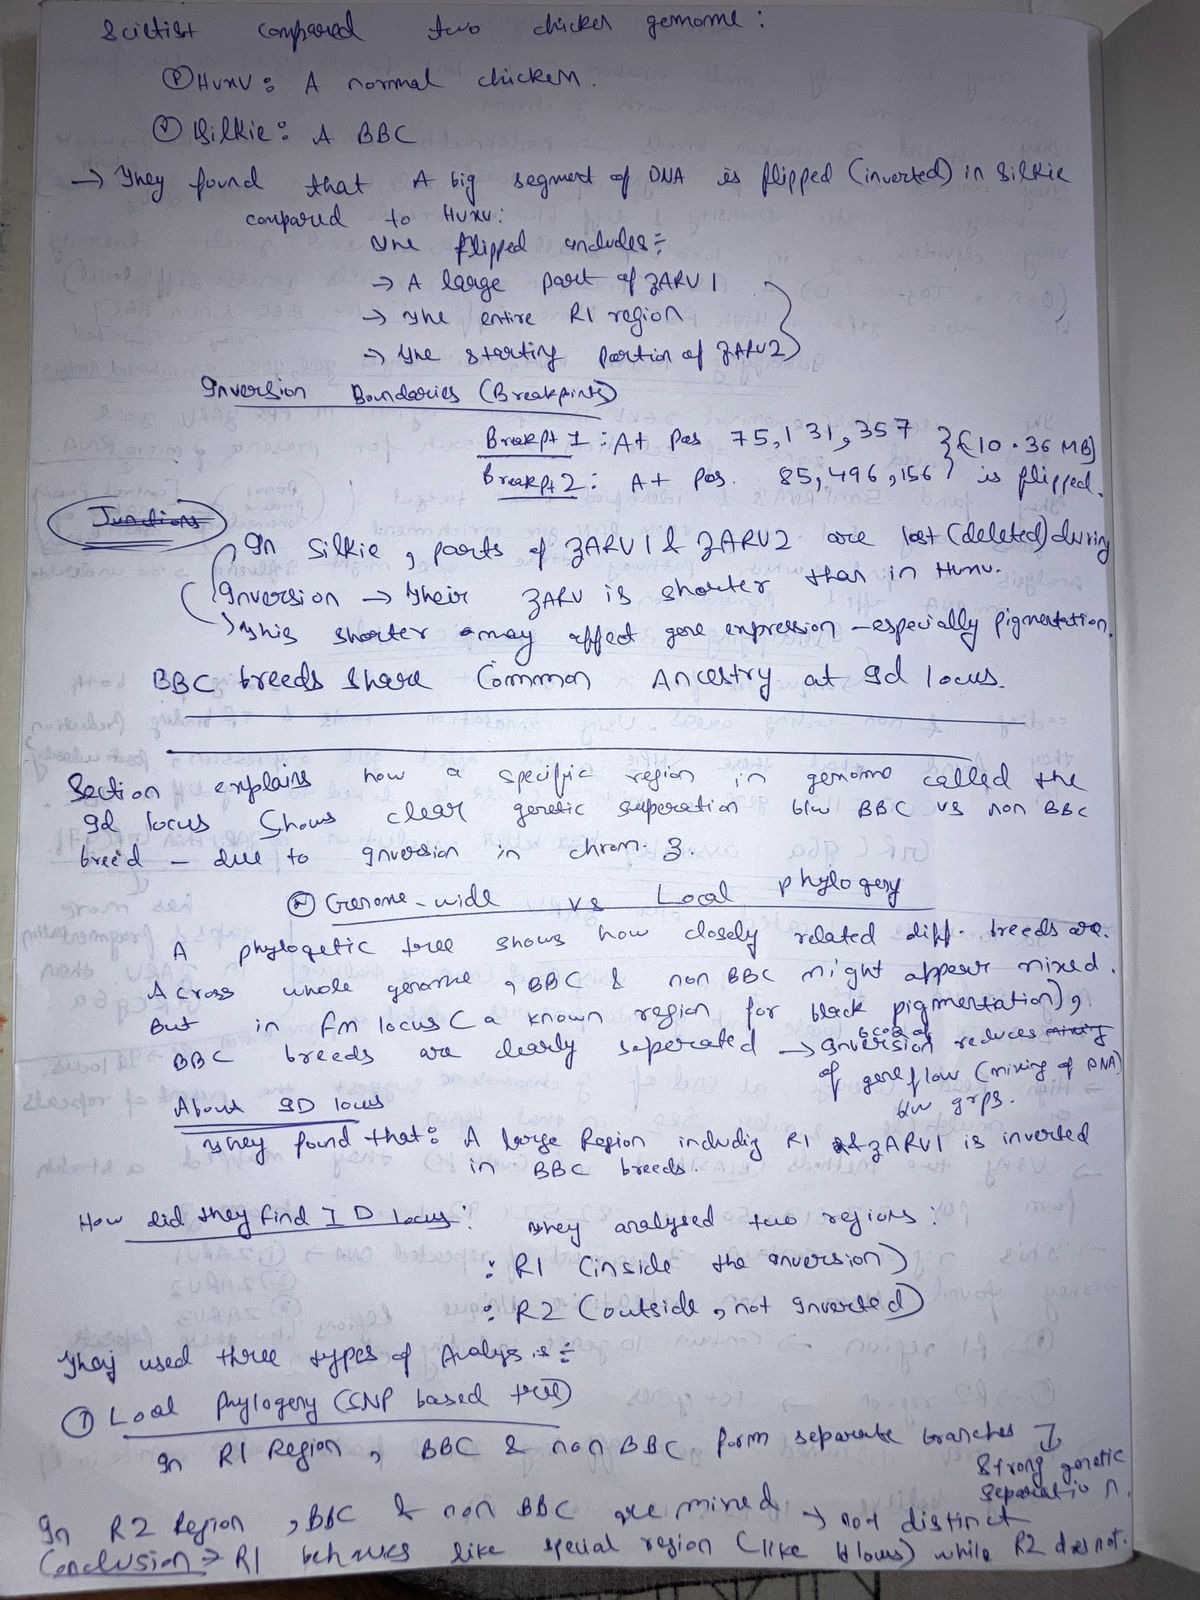 Scietist compared two chicken genome:
① HuxU: A normal chicken.
② Silkie: A BBC
→ They found that A big segment of DNA is flipped (inverted) in Silkie
compared to Huxu:
The flipped includes:
→ A large part of ZARU 1
→ The entire R1 region
→ The starting portion of ZARU2
Inversion Boundaries (Breakpints)
Breakpt 1: At Pos 75,131,357 } (10.36 MB)
Breakpt 2: At Pos. 85,496,156 } is flipped.
Junctions
In Silkie, parts of ZARU1 & ZARU2 are lost (deleted) during
Inversion → Their ZARU is shorter than in Huxu.
This shorter may affect gene expression - especially pigmentation.
BBC breeds share Common Ancestry at Id locus.
Section explains how a specific region in genome called the
Id locus Shows clear genetic seperation b/w BBC vs non BBC
breed - due to Inversion in chrom. Z.
Genome-wide vs Local phylogeny
A phylogetic tree shows how closely related diff. breeds are.
Across whole genome, BBC & non BBC might appear mixed.
But in Fm locus (a known region for black pigmentation),
BBC breeds are clearly seperated → bcoz of Inversion reduces
of gene flow (mixing of DNA)
b/w grps.
About ID locus
They found that: A large Region includig R1 & ZARU1 is inverted
in BBC breeds.
How did they find ID locus: They analysed two regions:
: R1 (inside the inversion)
: R2 (outside, not Inverted)
They used three types of Analysis:
① Local phylogeny (SNP based tree)
In R1 Region, BBC & non BBC form separate branches →
Strong genetic
separation.
In R2 Region, BBC & non BBC are mixed → not distinct
Conclusion → R1 behaves like special region (like Id locus) while R2 does not.